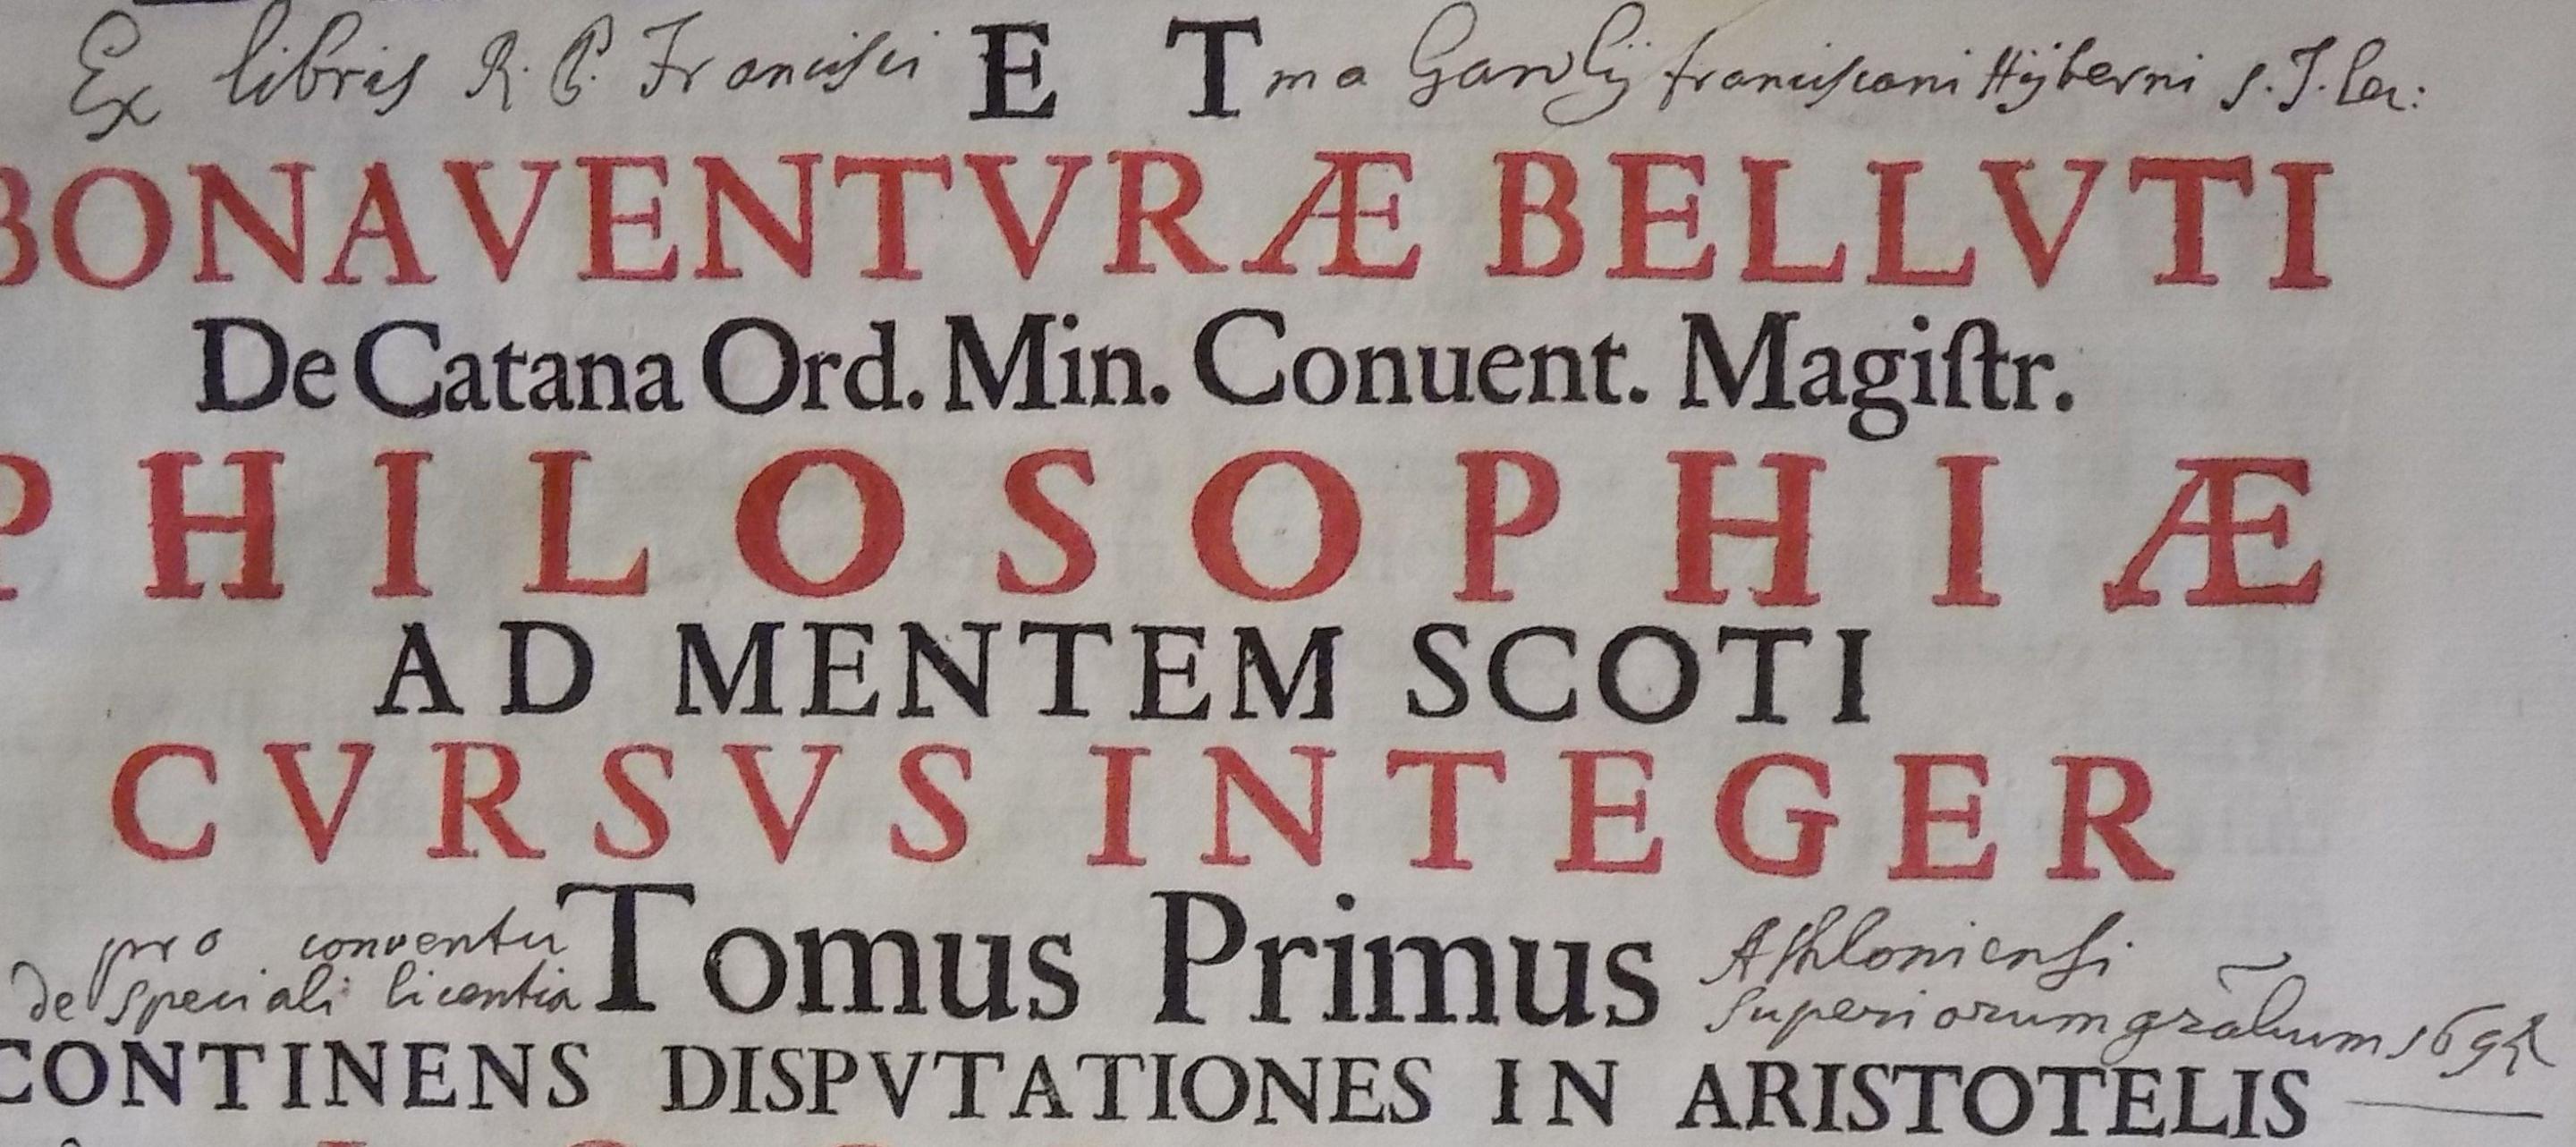 Ex libris R. P. Francisci E T ma Ganlÿ franciscani Hÿberni S. T. Lec:
BONAVENTVRÆ BELLVTI
De Catana Ord. Min. Conuent. Magiſtr.
PHILOSOPHIÆ
AD MENTEM SCOTI
CVRSVS INTEGER
pro conventu Tomus Primus Athloniensi
de speciali licentia superiorum grãlium
CONTINENS DISPVTATIONES IN ARISTOTELIS